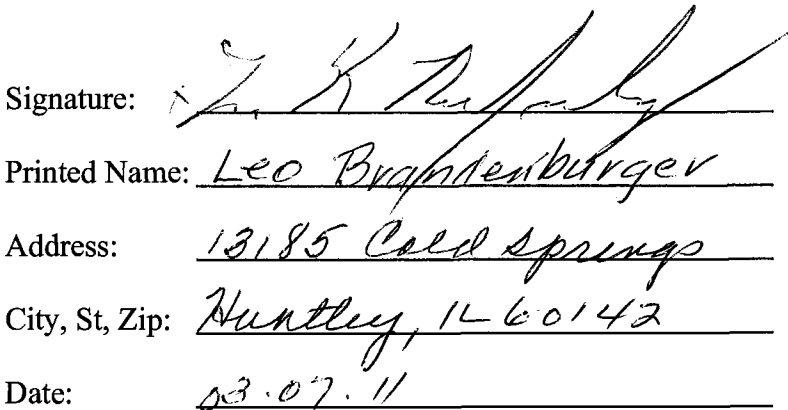 Signature:
Printed Name: Leo Brandenburger
Address: 13185 Cold Springs
City, St, Zip: Huntley, IL 60142
Date: 03.07.11